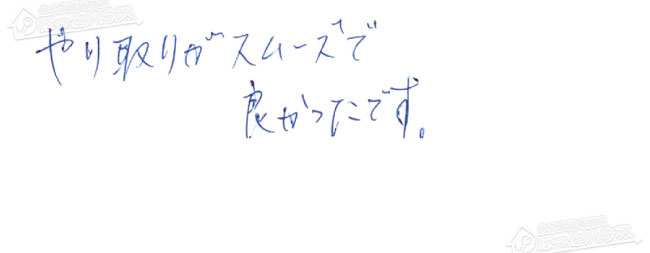 やり取りがスムーズで
良かったです。